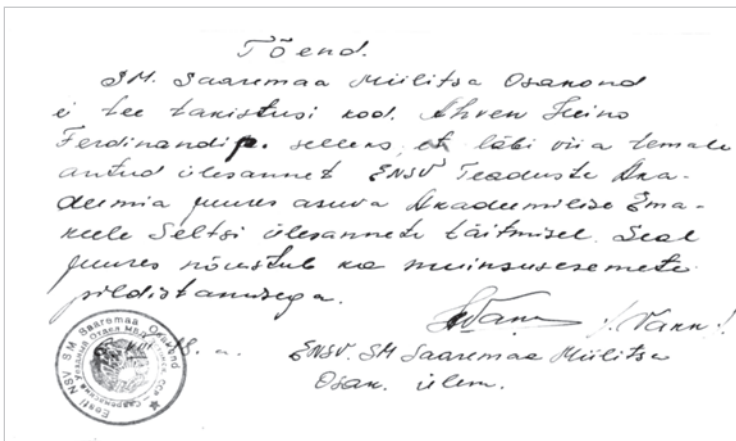 Tõend.
SM. Saaremaa Miilitsa Osakond
ei tee takistusi kod. Ahven Heino
Ferdinandi p. selleks, et läbi viia temale
antud ülesannet ENSV Teaduste Aka-
deemia juures asuva Akadeemilise Ema-
keele Seltsi ülesannete täitmisel. Seal
juures nõustub ka muinsusesemete
pildistamisega.
/. Vann./
ENSV. SM Saaremaa Miilitsa
Osak. ülem.
Eesti NSV SM Saaremaa Osakond